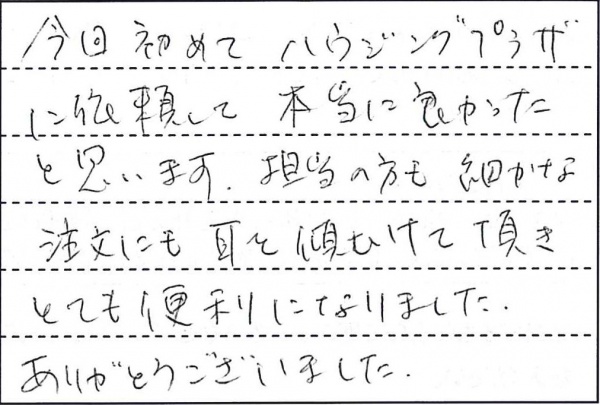 今回初めて ハウジングプラザ
に依頼して 本当に良かった
と思います. 担当の方も 細かな
注文にも 耳を傾むけて頂き
とても便利になりました.
ありがとうございました.